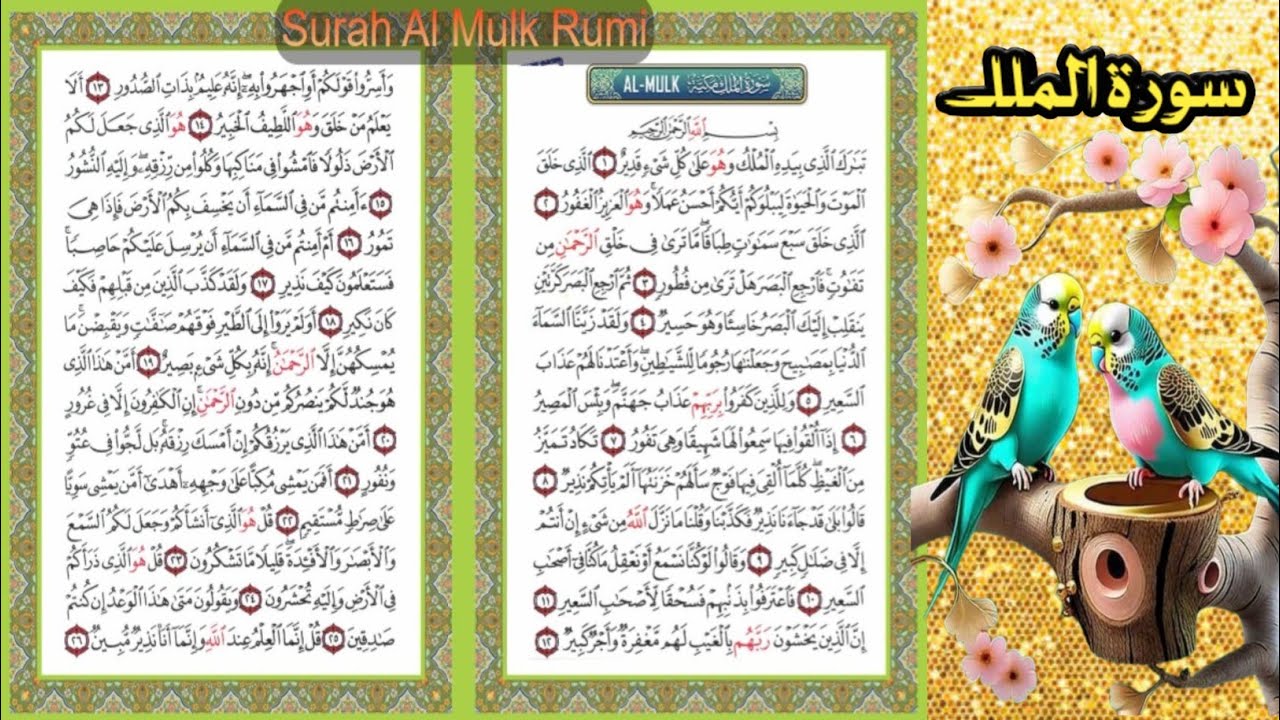 Surah Al Mulk Rumi
سورة الملك
AL-MULK سورة الملك مكية
بِسْمِ اللَّهِ الرَّحْمَٰنِ الرَّحِيمِ
تَبَٰرَكَ ٱلَّذِى بِيَدِهِ ٱلْمُلْكُ وَهُوَ عَلَىٰ كُلِّ شَىْءٍ قَدِيرٌ ١ ٱلَّذِى خَلَقَ
ٱلْمَوْتَ وَٱلْحَيَوٰةَ لِيَبْلُوَكُمْ أَيُّكُمْ أَحْسَنُ عَمَلًا ۚ وَهُوَ ٱلْعَزِيزُ ٱلْغَفُورُ ٢
ٱلَّذِى خَلَقَ سَبْعَ سَمَٰوَٰتٍ طِبَاقًا ۖ مَّا تَرَىٰ فِى خَلْقِ ٱلرَّحْمَٰنِ مِن
تَفَٰوُتٍ ۖ فَٱرْجِعِ ٱلْبَصَرَ هَلْ تَرَىٰ مِن فُطُورٍ ٣ ثُمَّ ٱرْجِعِ ٱلْبَصَرَ كَرَّتَيْنِ
يَنقَلِبْ إِلَيْكَ ٱلْبَصَرُ خَاسِئًا وَهُوَ حَسِيرٌ ٤ وَلَقَدْ زَيَّنَّا ٱلسَّمَآءَ
ٱلدُّنْيَا بِمَصَٰبِيحَ وَجَعَلْنَٰهَا رُجُومًا لِّلشَّيَٰطِينِ ۖ وَأَعْتَدْنَا لَهُمْ عَذَابَ
ٱلسَّعِيرِ ٥ وَلِلَّذِينَ كَفَرُوا۟ بِرَبِّهِمْ عَذَابُ جَهَنَّمَ ۖ وَبِئْسَ ٱلْمَصِيرُ
٦ إِذَآ أُلْقُوا۟ فِيهَا سَمِعُوا۟ لَهَا شَهِيقًا وَهِىَ تَفُورُ ٧ تَكَادُ تَمَيَّزُ
مِنَ ٱلْغَيْظِ ۖ كُلَّمَآ أُلْقِىَ فِيهَا فَوْجٌ سَأَلَهُمْ خَزَنَتُهَآ أَلَمْ يَأْتِكُمْ نَذِيرٌ ٨
قَالُوا۟ بَلَىٰ قَدْ جَآءَنَا نَذِيرٌ فَكَذَّبْنَا وَقُلْنَا مَا نَزَّلَ ٱللَّهُ مِن شَىْءٍ إِنْ أَنتُمْ
إِلَّا فِى ضَلَٰلٍ كَبِيرٍ ٩ وَقَالُوا۟ لَوْ كُنَّا نَسْمَعُ أَوْ نَعْقِلُ مَا كُنَّا فِىٓ أَصْحَٰبِ
ٱلسَّعِيرِ ١٠ فَٱعْتَرَفُوا۟ بِذَنۢبِهِمْ فَسُحْقًا لِّأَصْحَٰبِ ٱلسَّعِيرِ ١١
إِنَّ ٱلَّذِينَ يَخْشَوْنَ رَبَّهُم بِٱلْغَيْبِ لَهُم مَّغْفِرَةٌ وَأَجْرٌ كَبِيرٌ ١٢
وَأَسِرُّوا۟ قَوْلَكُمْ أَوِ ٱجْهَرُوا۟ بِهِۦٓ ۖ إِنَّهُۥ عَلِيمٌۢ بِذَاتِ ٱلصُّدُورِ ١٣ أَلَا
يَعْلَمُ مَنْ خَلَقَ وَهُوَ ٱللَّطِيفُ ٱلْخَبِيرُ ١٤ هُوَ ٱلَّذِى جَعَلَ لَكُمُ
ٱلْأَرْضَ ذَلُولًا فَٱمْشُوا۟ فِى مَنَاكِبِهَا وَكُلُوا۟ مِن رِّزْقِهِۦ ۖ وَإِلَيْهِ ٱلنُّشُورُ
١٥ ءَأَمِنتُم مَّن فِى ٱلسَّمَآءِ أَن يَخْسِفَ بِكُمُ ٱلْأَرْضَ فَإِذَا هِىَ
تَمُورُ ١٦ أَمْ أَمِنتُم مَّن فِى ٱلسَّمَآءِ أَن يُرْسِلَ عَلَيْكُمْ حَاصِبًا ۖ
فَسَتَعْلَمُونَ كَيْفَ نَذِيرِ ١٧ وَلَقَدْ كَذَّبَ ٱلَّذِينَ مِن قَبْلِهِمْ فَكَيْفَ
كَانَ نَكِيرِ ١٨ أَوَلَمْ يَرَوْا۟ إِلَى ٱلطَّيْرِ فَوْقَهُمْ صَٰٓفَّٰتٍ وَيَقْبِضْنَ ۚ مَا
يُمْسِكُهُنَّ إِلَّا ٱلرَّحْمَٰنُ ۚ إِنَّهُۥ بِكُلِّ شَىْءٍۭ بَصِيرٌ ١٩ أَمَّنْ هَٰذَا ٱلَّذِى
هُوَ جُندٌ لَّكُمْ يَنصُرُكُم مِّن دُونِ ٱلرَّحْمَٰنِ ۚ إِنِ ٱلْكَٰفِرُونَ إِلَّا فِى غُرُورٍ
٢٠ أَمَّنْ هَٰذَا ٱلَّذِى يَرْزُقُكُمْ إِنْ أَمْسَكَ رِزْقَهُۥ ۚ بَل لَّجُّوا۟ فِى عُتُوٍّ
وَنُفُورٍ ٢١ أَفَمَن يَمْشِى مُكِبًّا عَلَىٰ وَجْهِهِۦٓ أَهْدَىٰٓ أَمَّن يَمْشِى سَوِيًّا
عَلَىٰ صِرَٰطٍ مُّسْتَقِيمٍ ٢٢ قُلْ هُوَ ٱلَّذِىٓ أَنشَأَكُمْ وَجَعَلَ لَكُمُ ٱلسَّمْعَ
وَٱلْأَبْصَٰرَ وَٱلْأَفْـِٔدَةَ ۖ قَلِيلًا مَّا تَشْكُرُونَ ٢٣ قُلْ هُوَ ٱلَّذِى ذَرَأَكُمْ
فِى ٱلْأَرْضِ وَإِلَيْهِ تُحْشَرُونَ ٢٤ وَيَقُولُونَ مَتَىٰ هَٰذَا ٱلْوَعْدُ إِن كُنتُمْ
صَٰدِقِينَ ٢٥ قُلْ إِنَّمَا ٱلْعِلْمُ عِندَ ٱللَّهِ وَإِنَّمَآ أَنَا۠ نَذِيرٌ مُّبِينٌ ٢٦